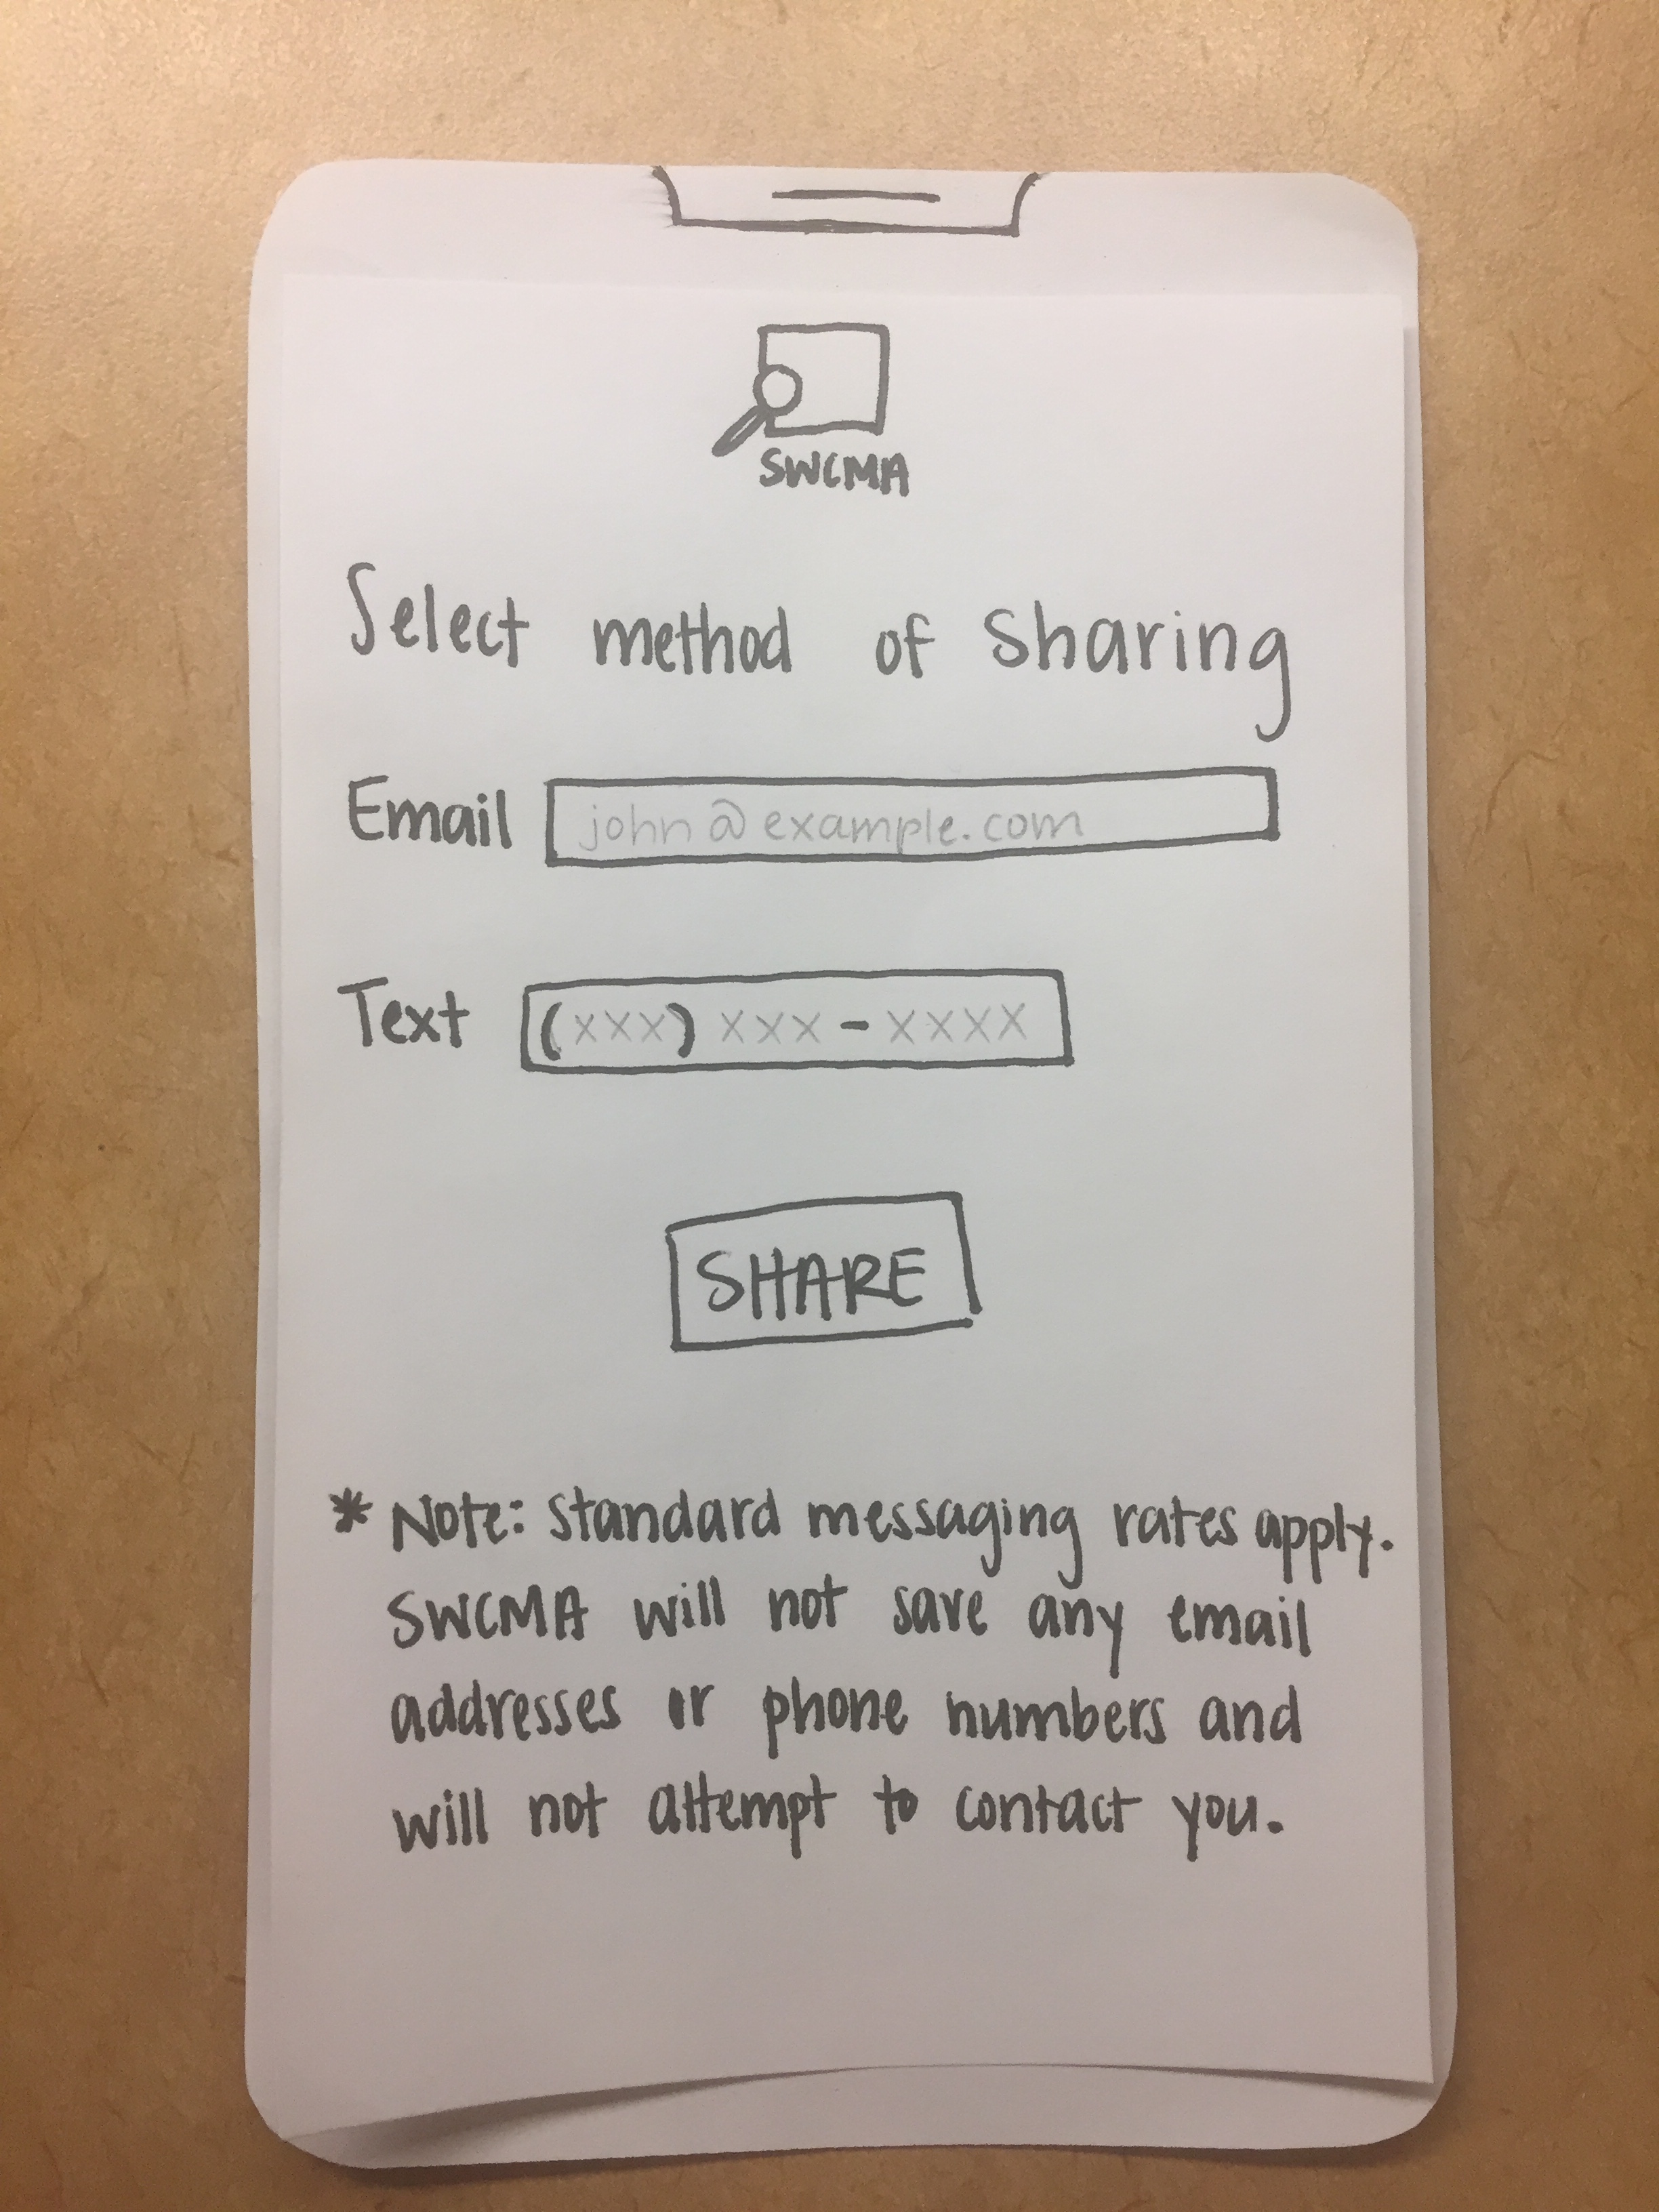 SWCMA
Select method of Sharing
Email john@example.com
Text (xxx) xxx - xxxx
SHARE
* Note: Standard messaging rates apply.
SWCMA will not save any email
addresses or phone numbers and
will not attempt to contact you.